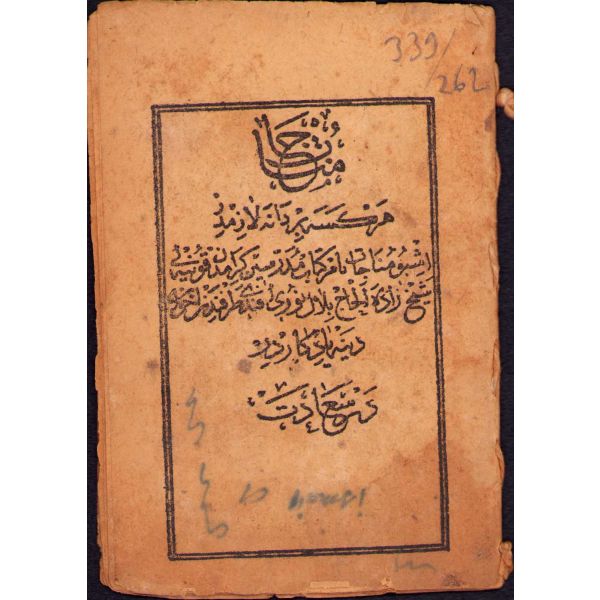 339/262
مناجات
هركسه بر دانه لازمدر
اشبو مناجات نافركان مدرسين كرامدن قونيه لى
شيخ زاده الحاج بلال نورى افندى طرفندن اخوان
دينه يادكاردر
درسعادت